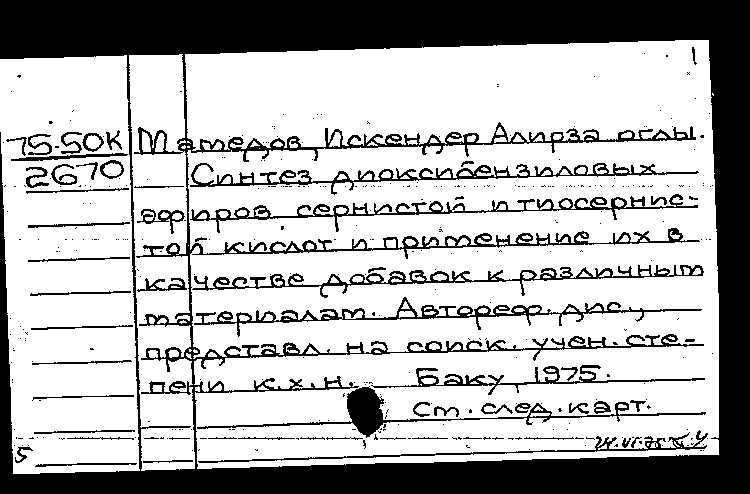 1
75-50K Мамедов, Искендер Алирза оглы.
2670 Синтез диоксибензиловых
эфиров сернистой и тиосернис-
той кислот и применение их в
качестве добавок к различным
материалам. Автореф. дис.,
представл. на соиск. учен. сте-
пени к.х.н. Баку, 1975.
См. след. карт.
5